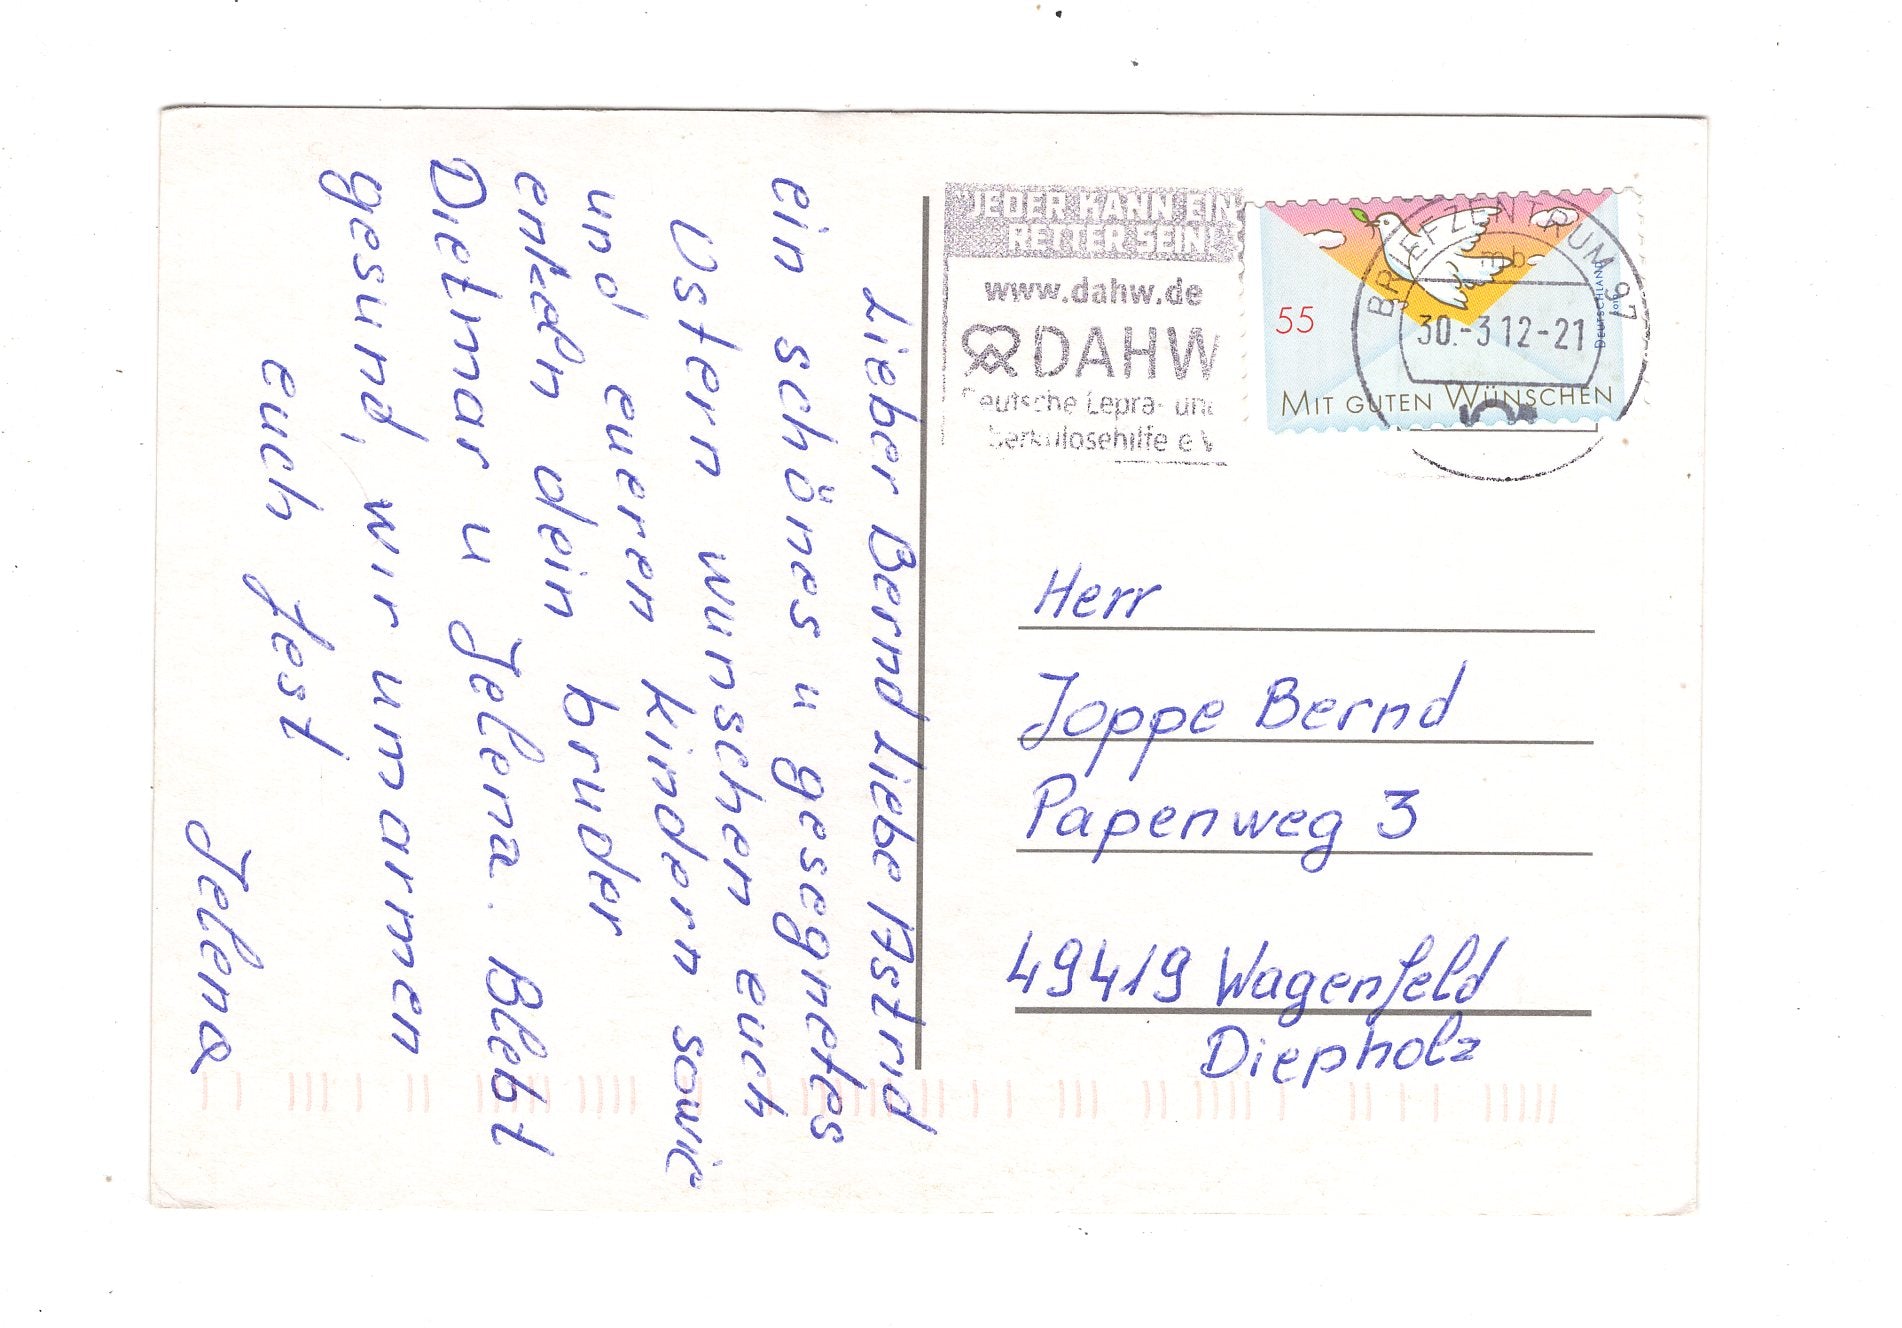 Lieber Bernd Liebe Astrid
ein schönes u gesegnetes
Ostern wunschen euch
und eueren kindern sowie
enkeln dein bruder
Dietmar u Jelena. Bleibt
gesund, wir umarmen
euch fest
Jelena
JEDER KANN EIN
RETTER SEIN!
www.dahw.de
DAHW
Deutsche Lepra- und
berkulosehilfe e V
55
MIT GUTEN WÜNSCHEN
DEUTSCHLAND
BRIEFZENTRUM 97
mb
30.-3 12-21
Herr
Joppe Bernd
Papenweg 3
49419 Wagenfeld
Diepholz